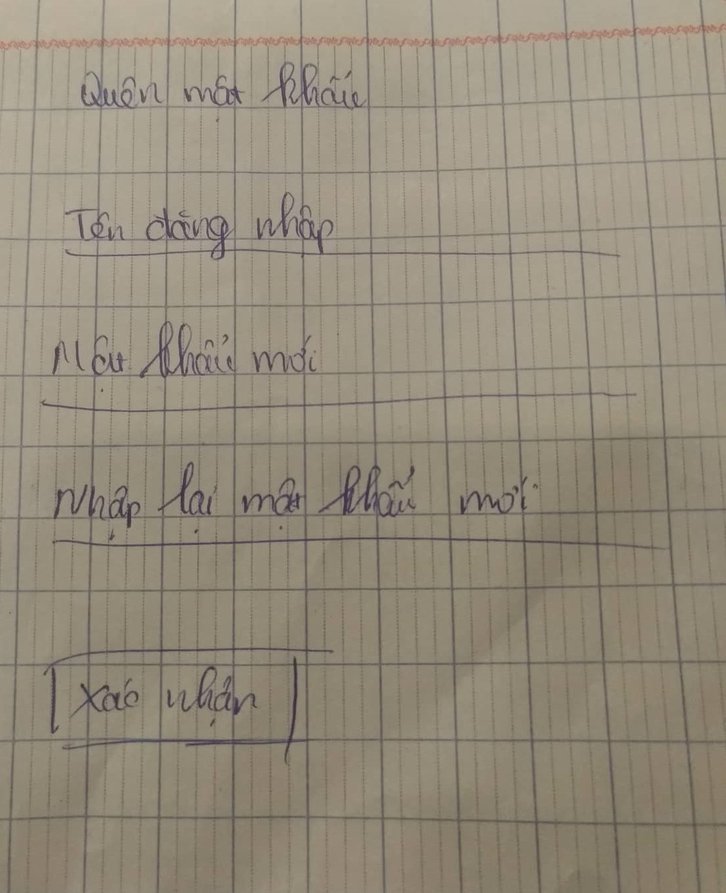 Quên mật khẩu
Tên đăng nhập
Mật khẩu mới
Nhập lại mật khẩu mới
Xác nhận